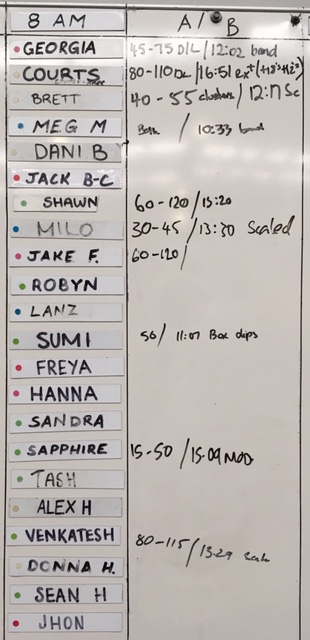 8 AM A/B
GEORGIA 45-75 D/L / 12:02 band
COURTS 80-110 DL / 16:51
BRETT 40-55 / 12:17 Sc
MEG M / 10:33
DANI B
JACK B-C
SHAWN 60-120 / 15:20
MILO 30-45 / 13:30 Scaled
JAKE F. 60-120 /
ROBYN
LANZ
SUMI 50 / 11:07 Box dips
FREYA
HANNA
SANDRA
SAPPHIRE 15-50 / 15:09 MOD
TASH
ALEX H
VENKATESH 80-115 / 13:29
DONNA H.
SEAN H
JHON